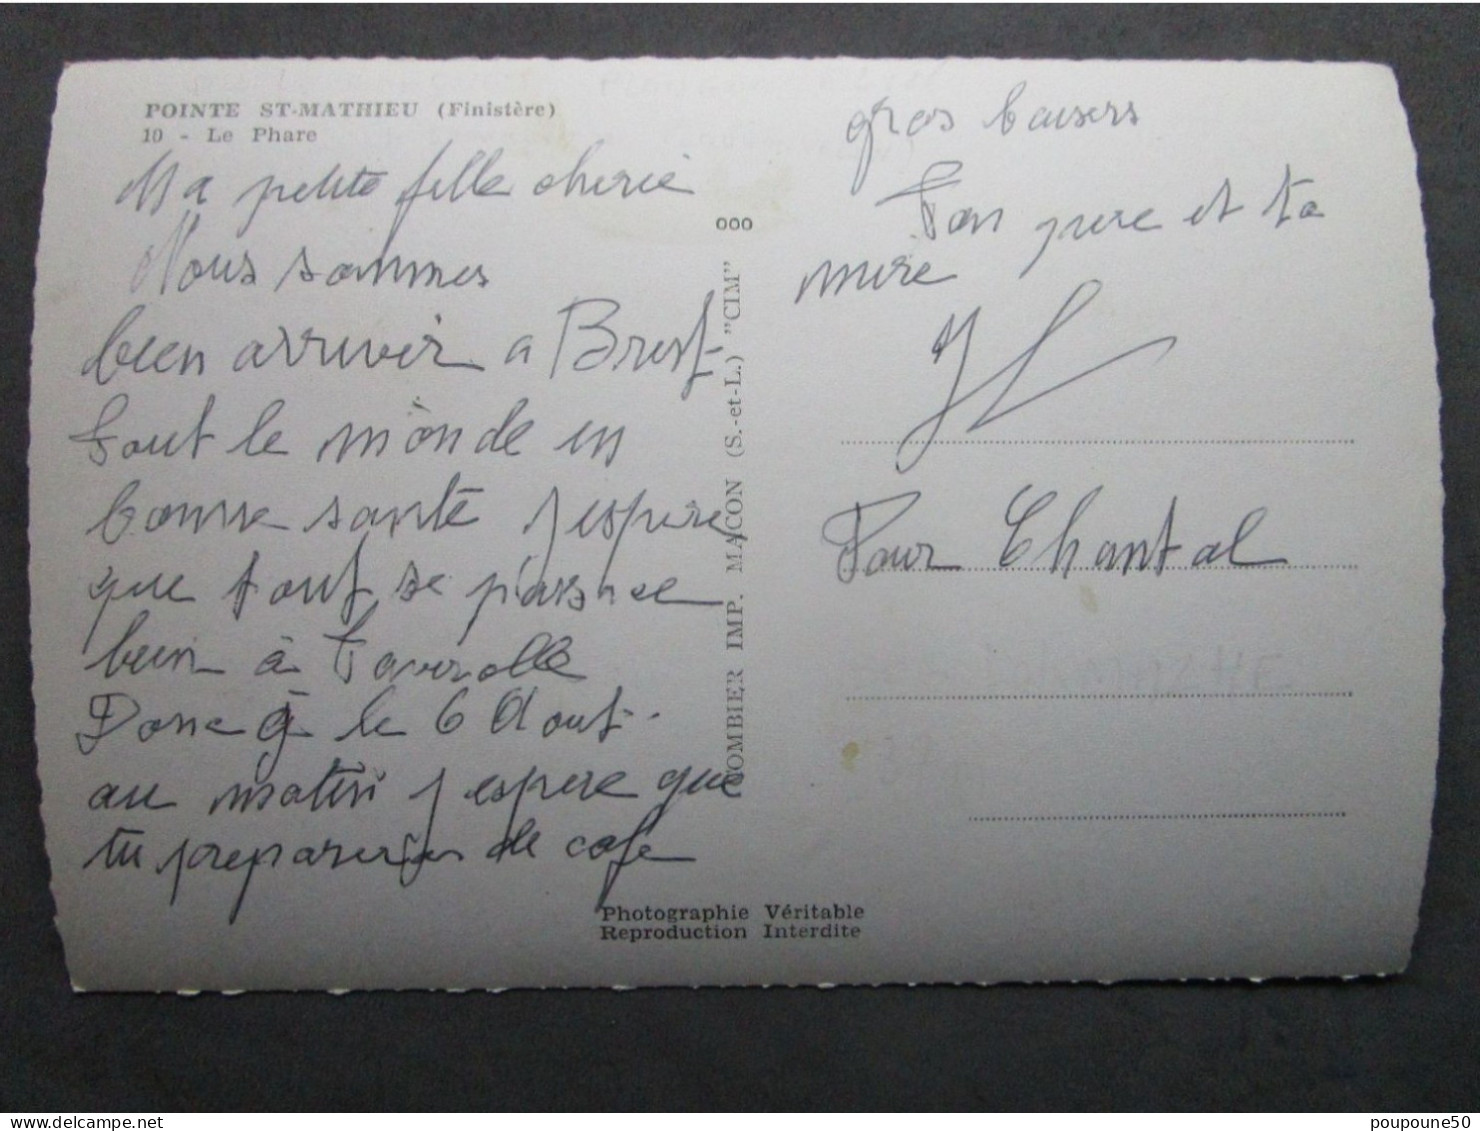 POINTE ST-MATHIEU (Finistère)
10 - Le Phare
Ma petite fille cherie
Nous sommes
bien arriver a Brest
tout le monde en
bonne santé j espere
que tout se passe
bien à Faverolle
Donc à le 6 Aout.
au matin j espere que
tu prepareras de cafe
gros baisers
Ton pere et ta
mere
Pour Chantal
000
COMBIER IMP. MACON (S.-et-L.) "CIM"
Photographie Véritable
Reproduction Interdite
poupoune50